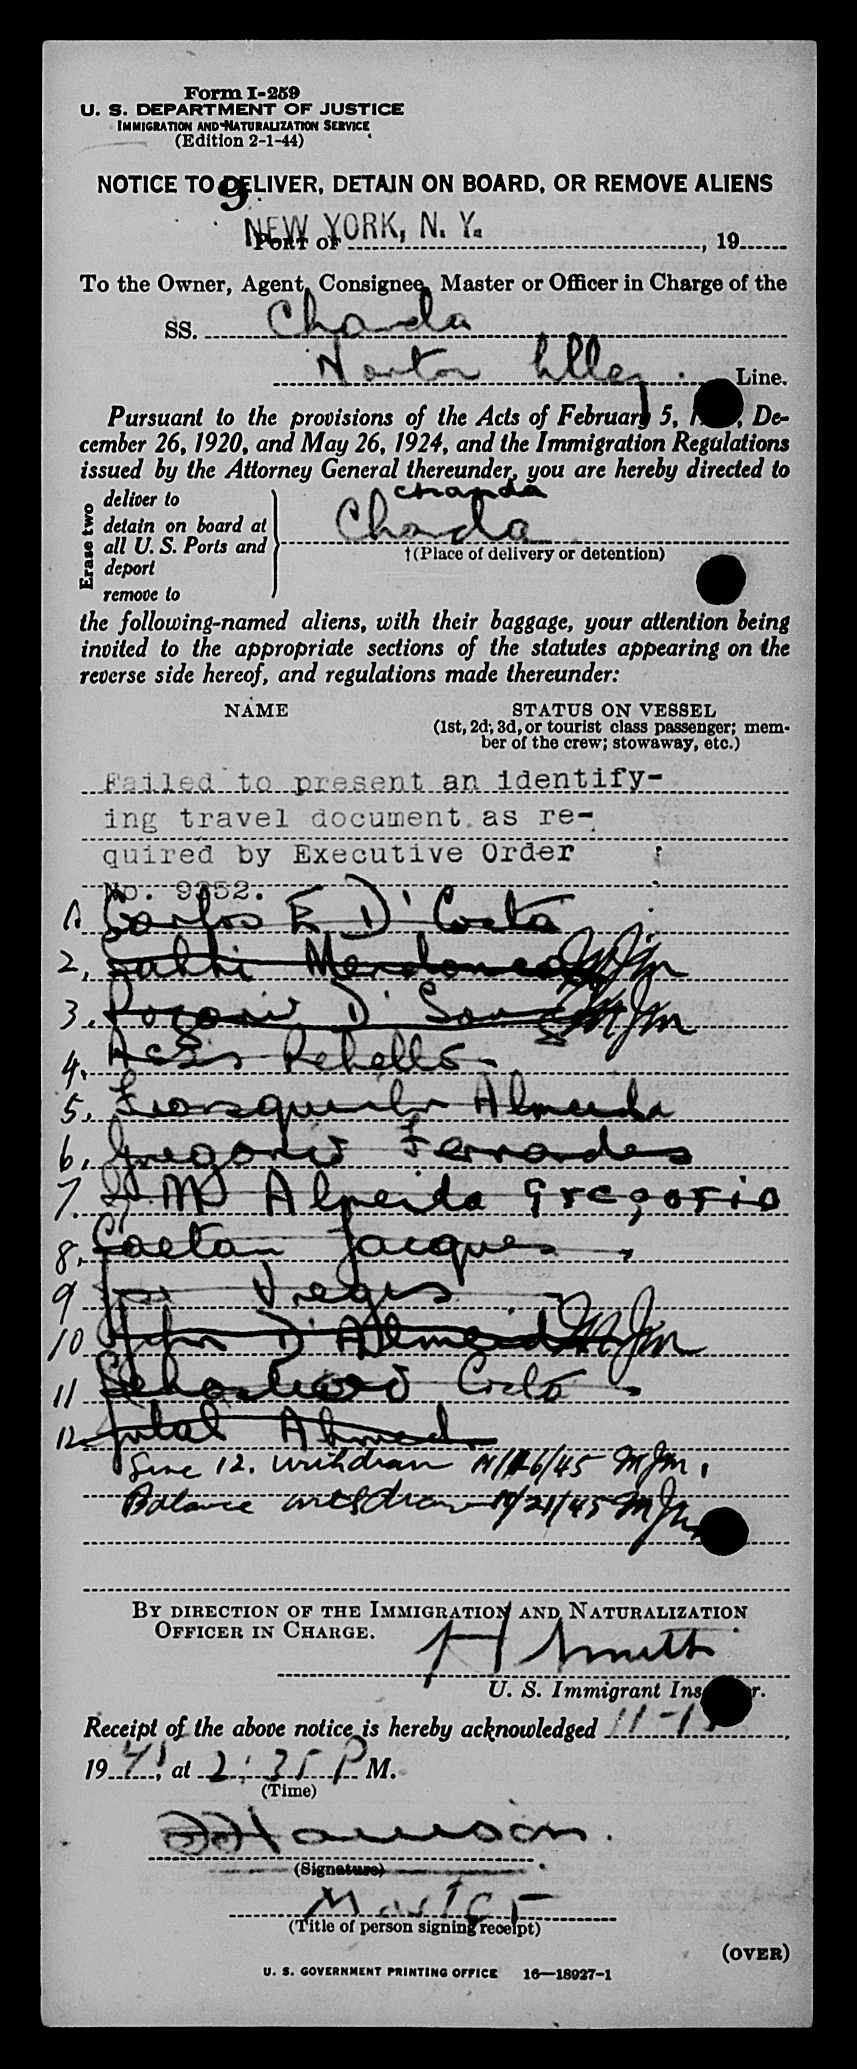 Form I-259
U. S. DEPARTMENT OF JUSTICE
IMMIGRATION AND NATURALIZATION SERVICE
(Edition 2-1-44)
NOTICE TO DELIVER, DETAIN ON BOARD, OR REMOVE ALIENS
9
NEW YORK, N. Y.
PORT OF , 19
To the Owner, Agent, Consignee, Master or Officer in Charge of the
SS. Chanda
Norton Lilley Line.
Pursuant to the provisions of the Acts of February 5, , De-
cember 26, 1920, and May 26, 1924, and the Immigration Regulations
issued by the Attorney General thereunder, you are hereby directed to
Erase two
deliver to
detain on board at
all U. S. Ports and
deport
remove to
chanda
Chanda
†(Place of delivery or detention)
the following-named aliens, with their baggage, your attention being
invited to the appropriate sections of the statutes appearing on the
reverse side hereof, and regulations made thereunder:
NAME STATUS ON VESSEL
(1st, 2d, 3d, or tourist class passenger; mem-
ber of the crew; stowaway, etc.)
Failed to present an identify-
ing travel document as re-
quired by Executive Order
No. 9352.
1 Carlos F D'Costa
2. Mendonca MJM
3. D' Souza MJM
4. Rebello
5. Almeida
6. Gregorio Fernandes
7. M Almeida Gregorio
8. Caetan Jacques
9 Viegas
10 John D'Almeida MJM
11 Costa
12 Ahmed
Line 12. withdrawn 11/16/45 MJM
Balance withdrawn 11/21/45 MJM
BY DIRECTION OF THE IMMIGRATION AND NATURALIZATION
OFFICER IN CHARGE.
H Smith
U. S. Immigrant
Receipt of the above notice is hereby acknowledged 11-15
19 , at 2:35 P M.
(Time)
Harrison
(Signature)
Master
(Title of person signing receipt)
(OVER)
U. S. GOVERNMENT PRINTING OFFICE 16—18927-1